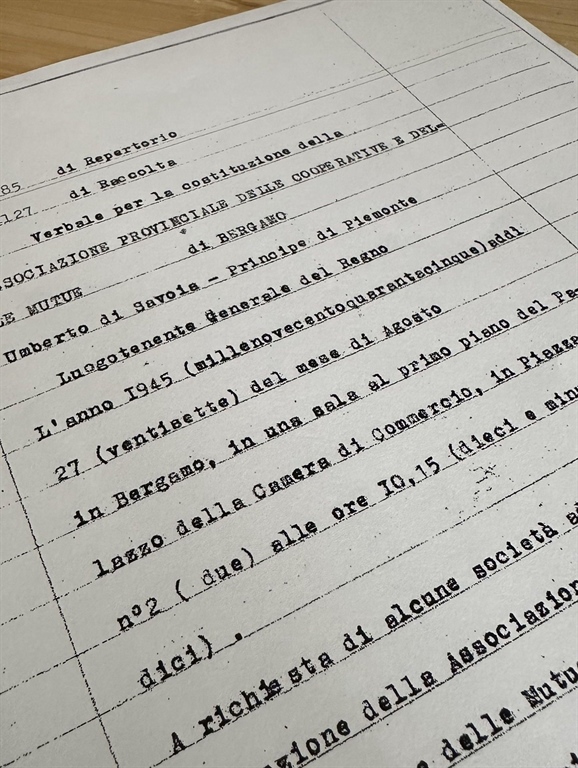 85 di Repertorio
1127 di Raccolta
Verbale per la costituzione della
ASSOCIAZIONE PROVINCIALE DELLE COOPERATIVE E DEL=
LE MUTUE di BERGAMO
Umberto di Savoia - Principe di Piemonte
Luogotenente Generale del Regno
L'anno I945 (millenovecentoquarantacinque)addì
27 (ventisette) del mese di Agosto
in Bergamo, in una sala al primo piano del Pa-
lazzo della Camera di Commercio, in Piazza
n°2 ( due) alle ore IO,15 (dieci e min
dici) .
A richiesta di alcune società ad
zione della Associazion
e delle Mutue